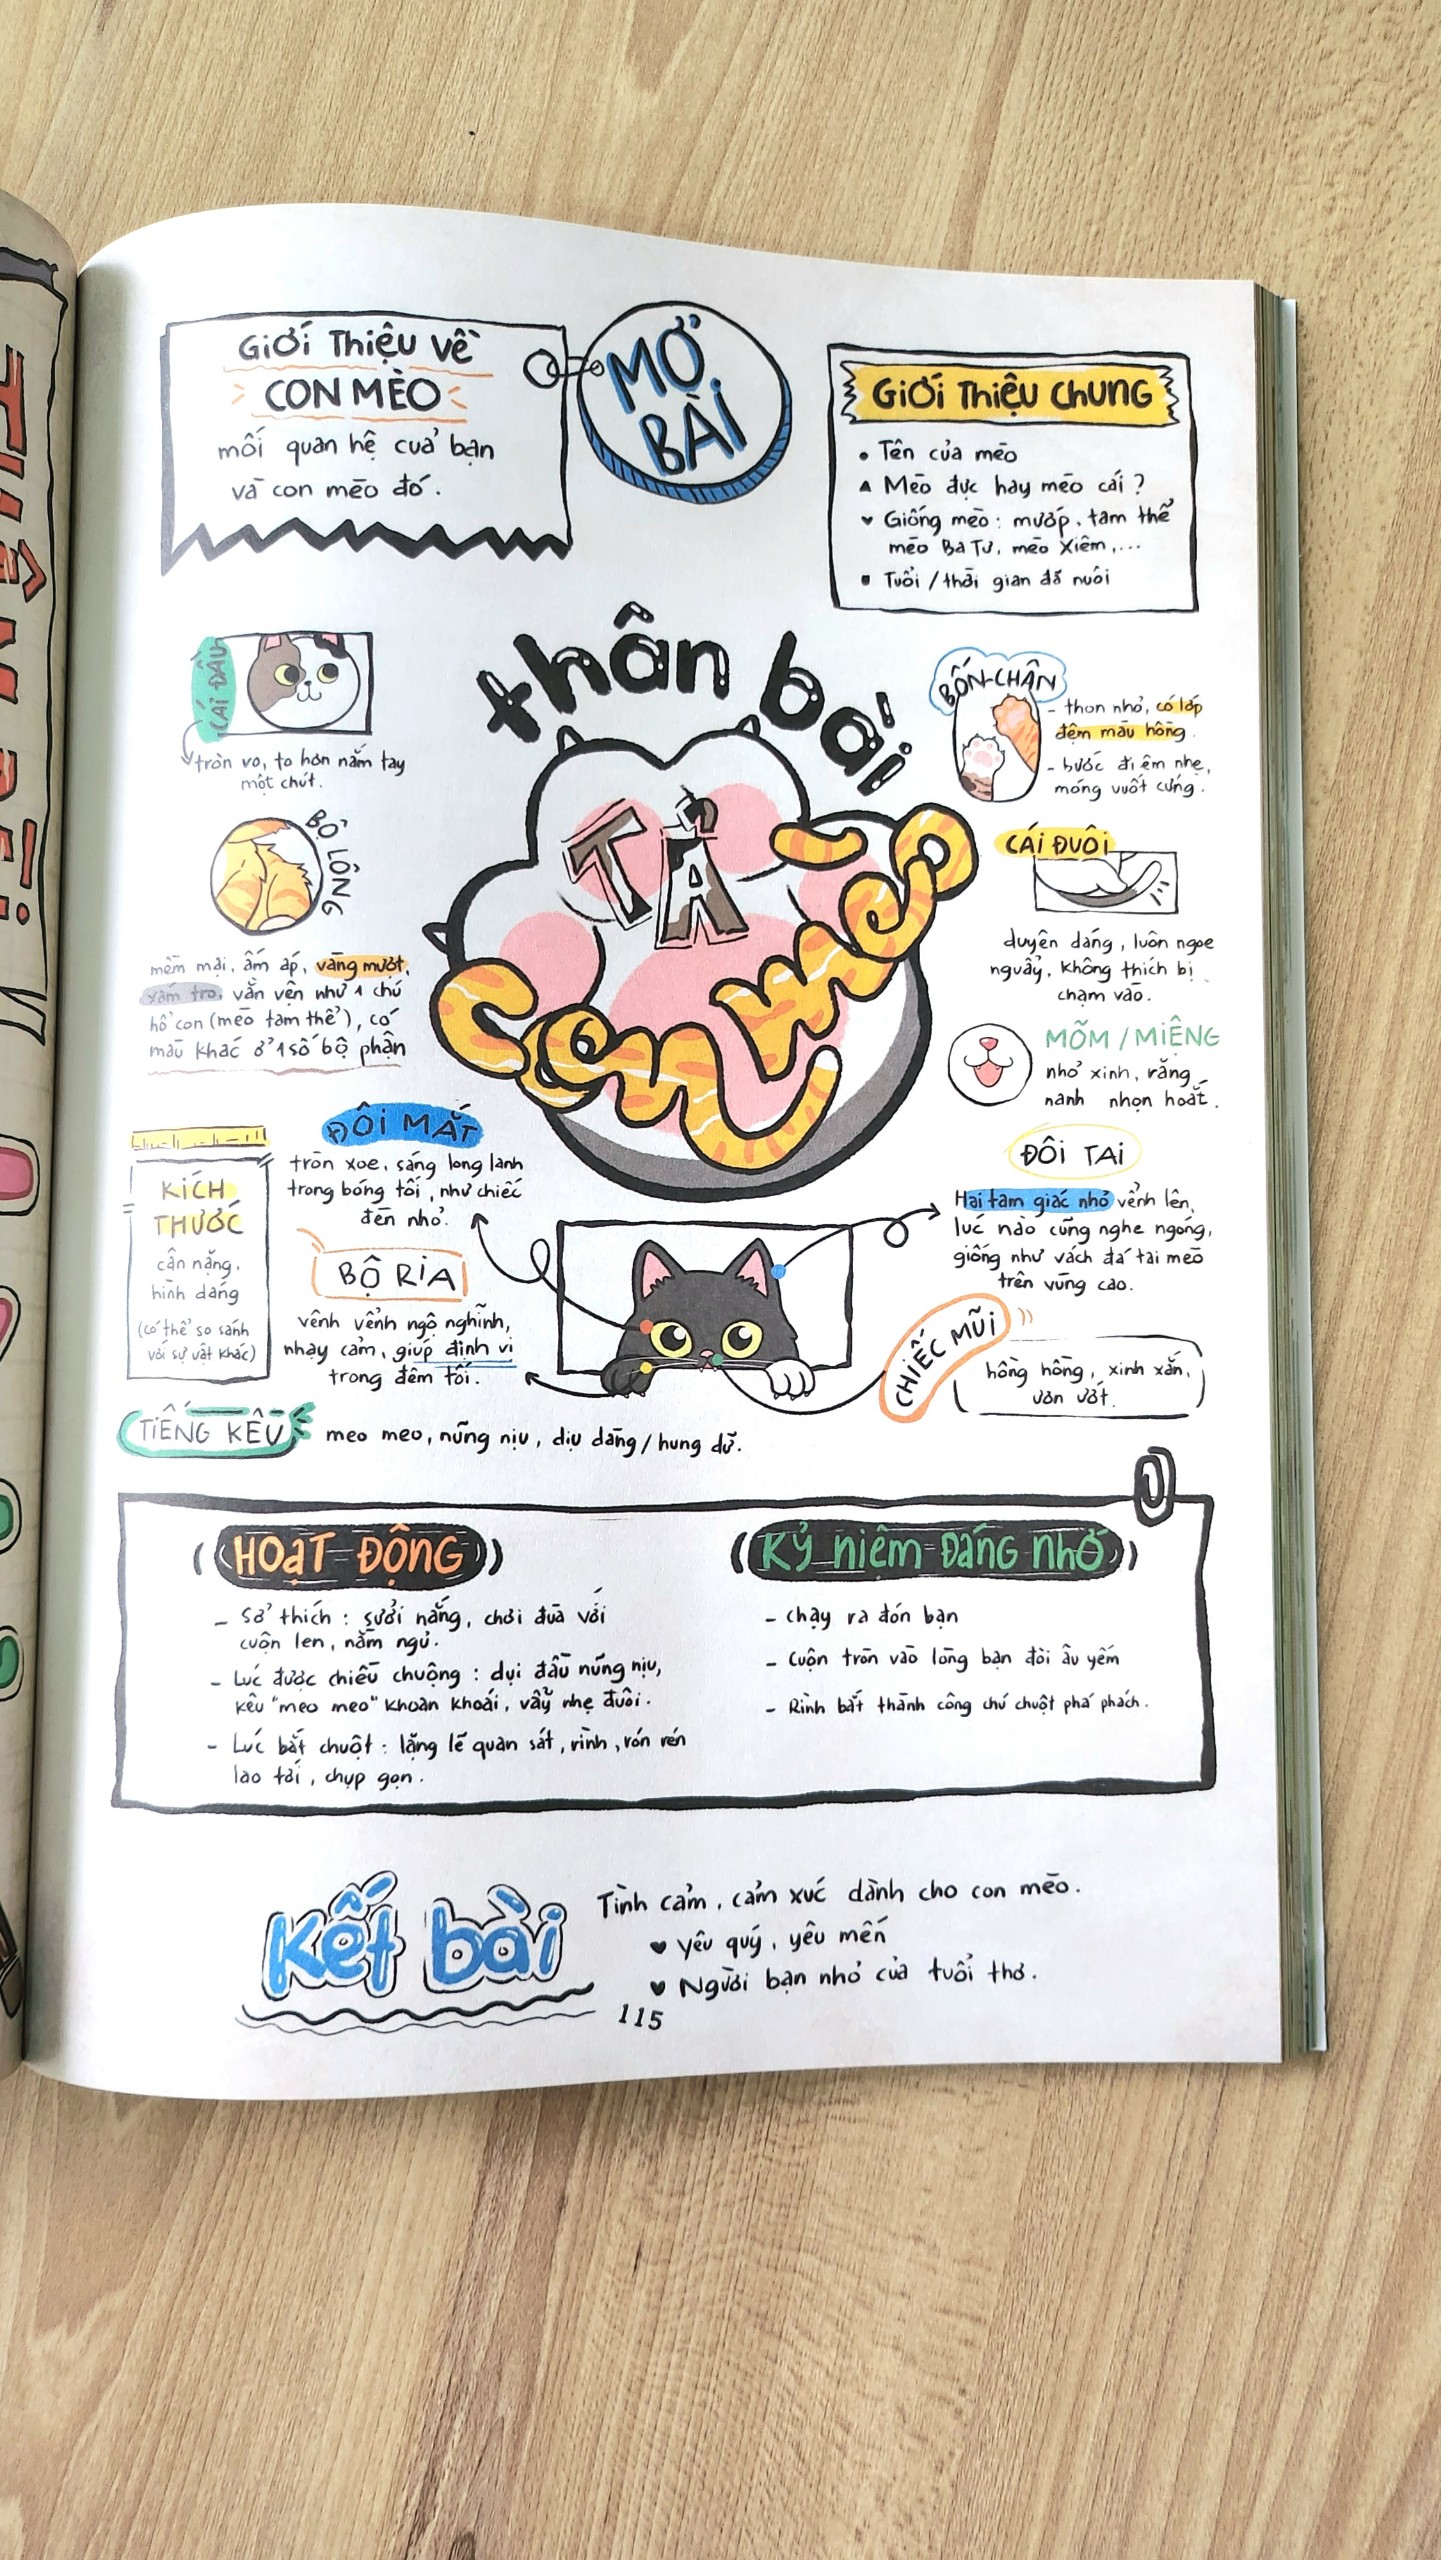 Giới Thiệu về
CON MÈO
mối quan hệ của bạn
và con mèo đó.
MỞ
BÀI
Giới Thiệu Chung
• Tên của mèo
▲ Mèo đực hay mèo cái ?
♥ Giống mèo : mướp, tam thể
mèo Ba Tư, mèo Xiêm,...
▪ Tuổi / thời gian đã nuôi
thân bài
TẢ
con mèo
CÁI ĐẦU
tròn vo, to hơn nắm tay
một chút.
BỘ LÔNG
mềm mại, ấm áp, vàng mượt,
xám tro, vằn vện như 1 chú
hổ con (mèo tam thể), có
màu khác ở 1 số bộ phận
BỐN CHÂN
- thon nhỏ, có lớp
đệm màu hồng.
- bước đi êm nhẹ,
móng vuốt cứng.
CÁI ĐUÔI
duyên dáng, luôn ngoe
nguẩy, không thích bị
chạm vào.
MÕM / MIỆNG
nhỏ xinh, răng
nanh nhọn hoắt.
KÍCH
THƯỚC
cân nặng,
hình dáng
(có thể so sánh
với sự vật khác)
ĐÔI MẮT
tròn xoe, sáng long lanh
trong bóng tối, như chiếc
đèn nhỏ.
ĐÔI TAI
Hai tam giác nhỏ vểnh lên,
lúc nào cũng nghe ngóng,
giống như vách đá tai mèo
trên vùng cao.
BỘ RIA
vênh vểnh ngộ nghĩnh,
nhạy cảm, giúp định vị
trong đêm tối.
CHIẾC MŨI
hồng hồng, xinh xắn,
ươn ướt.
TIẾNG KÊU
meo meo, nũng nịu, dịu dàng / hung dữ.
HOẠT ĐỘNG
- Sở thích : sưởi nắng, chơi đùa với
cuộn len, nằm ngủ.
- Lúc được chiều chuộng : dụi đầu nũng nịu,
kêu "meo meo" khoan khoái, vẫy nhẹ đuôi.
- Lúc bắt chuột : lặng lẽ quan sát, rình, rón rén
lao tới, chụp gọn.
Kỷ niệm Đáng nhớ
- chạy ra đón bạn
- Cuộn tròn vào lòng bạn đòi âu yếm
- Rình bắt thành công chú chuột phá phách.
Kết bài
Tình cảm, cảm xúc dành cho con mèo.
♥ yêu quý, yêu mến
♥ Người bạn nhỏ của tuổi thơ.
115